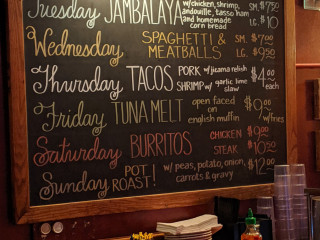 Tuesday JAMBALAYA w/chicken, shrimp, andouille, tasso ham and homemade corn bread SM. $7.50 LG. $10
Wednesday SPAGHETTI & MEATBALLS SM. $7.00 LG. $9.50
Thursday TACOS PORK w/jicama relish SHRIMP w/ garlic lime slaw $4.00 each
Friday TUNA MELT open faced on english muffin $9.00 w/fries
Saturday BURRITOS CHICKEN $9.00 STEAK $10.50
Sunday POT ROAST! w/ peas, potato, onion, carrots & gravy $12.00